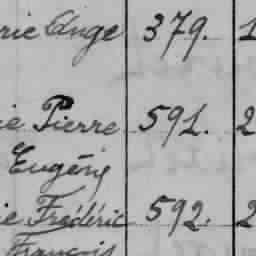 rie Ange 379. 1
ie Pierre 591. 2
Eugène
ie Frédéric 592. 2
François